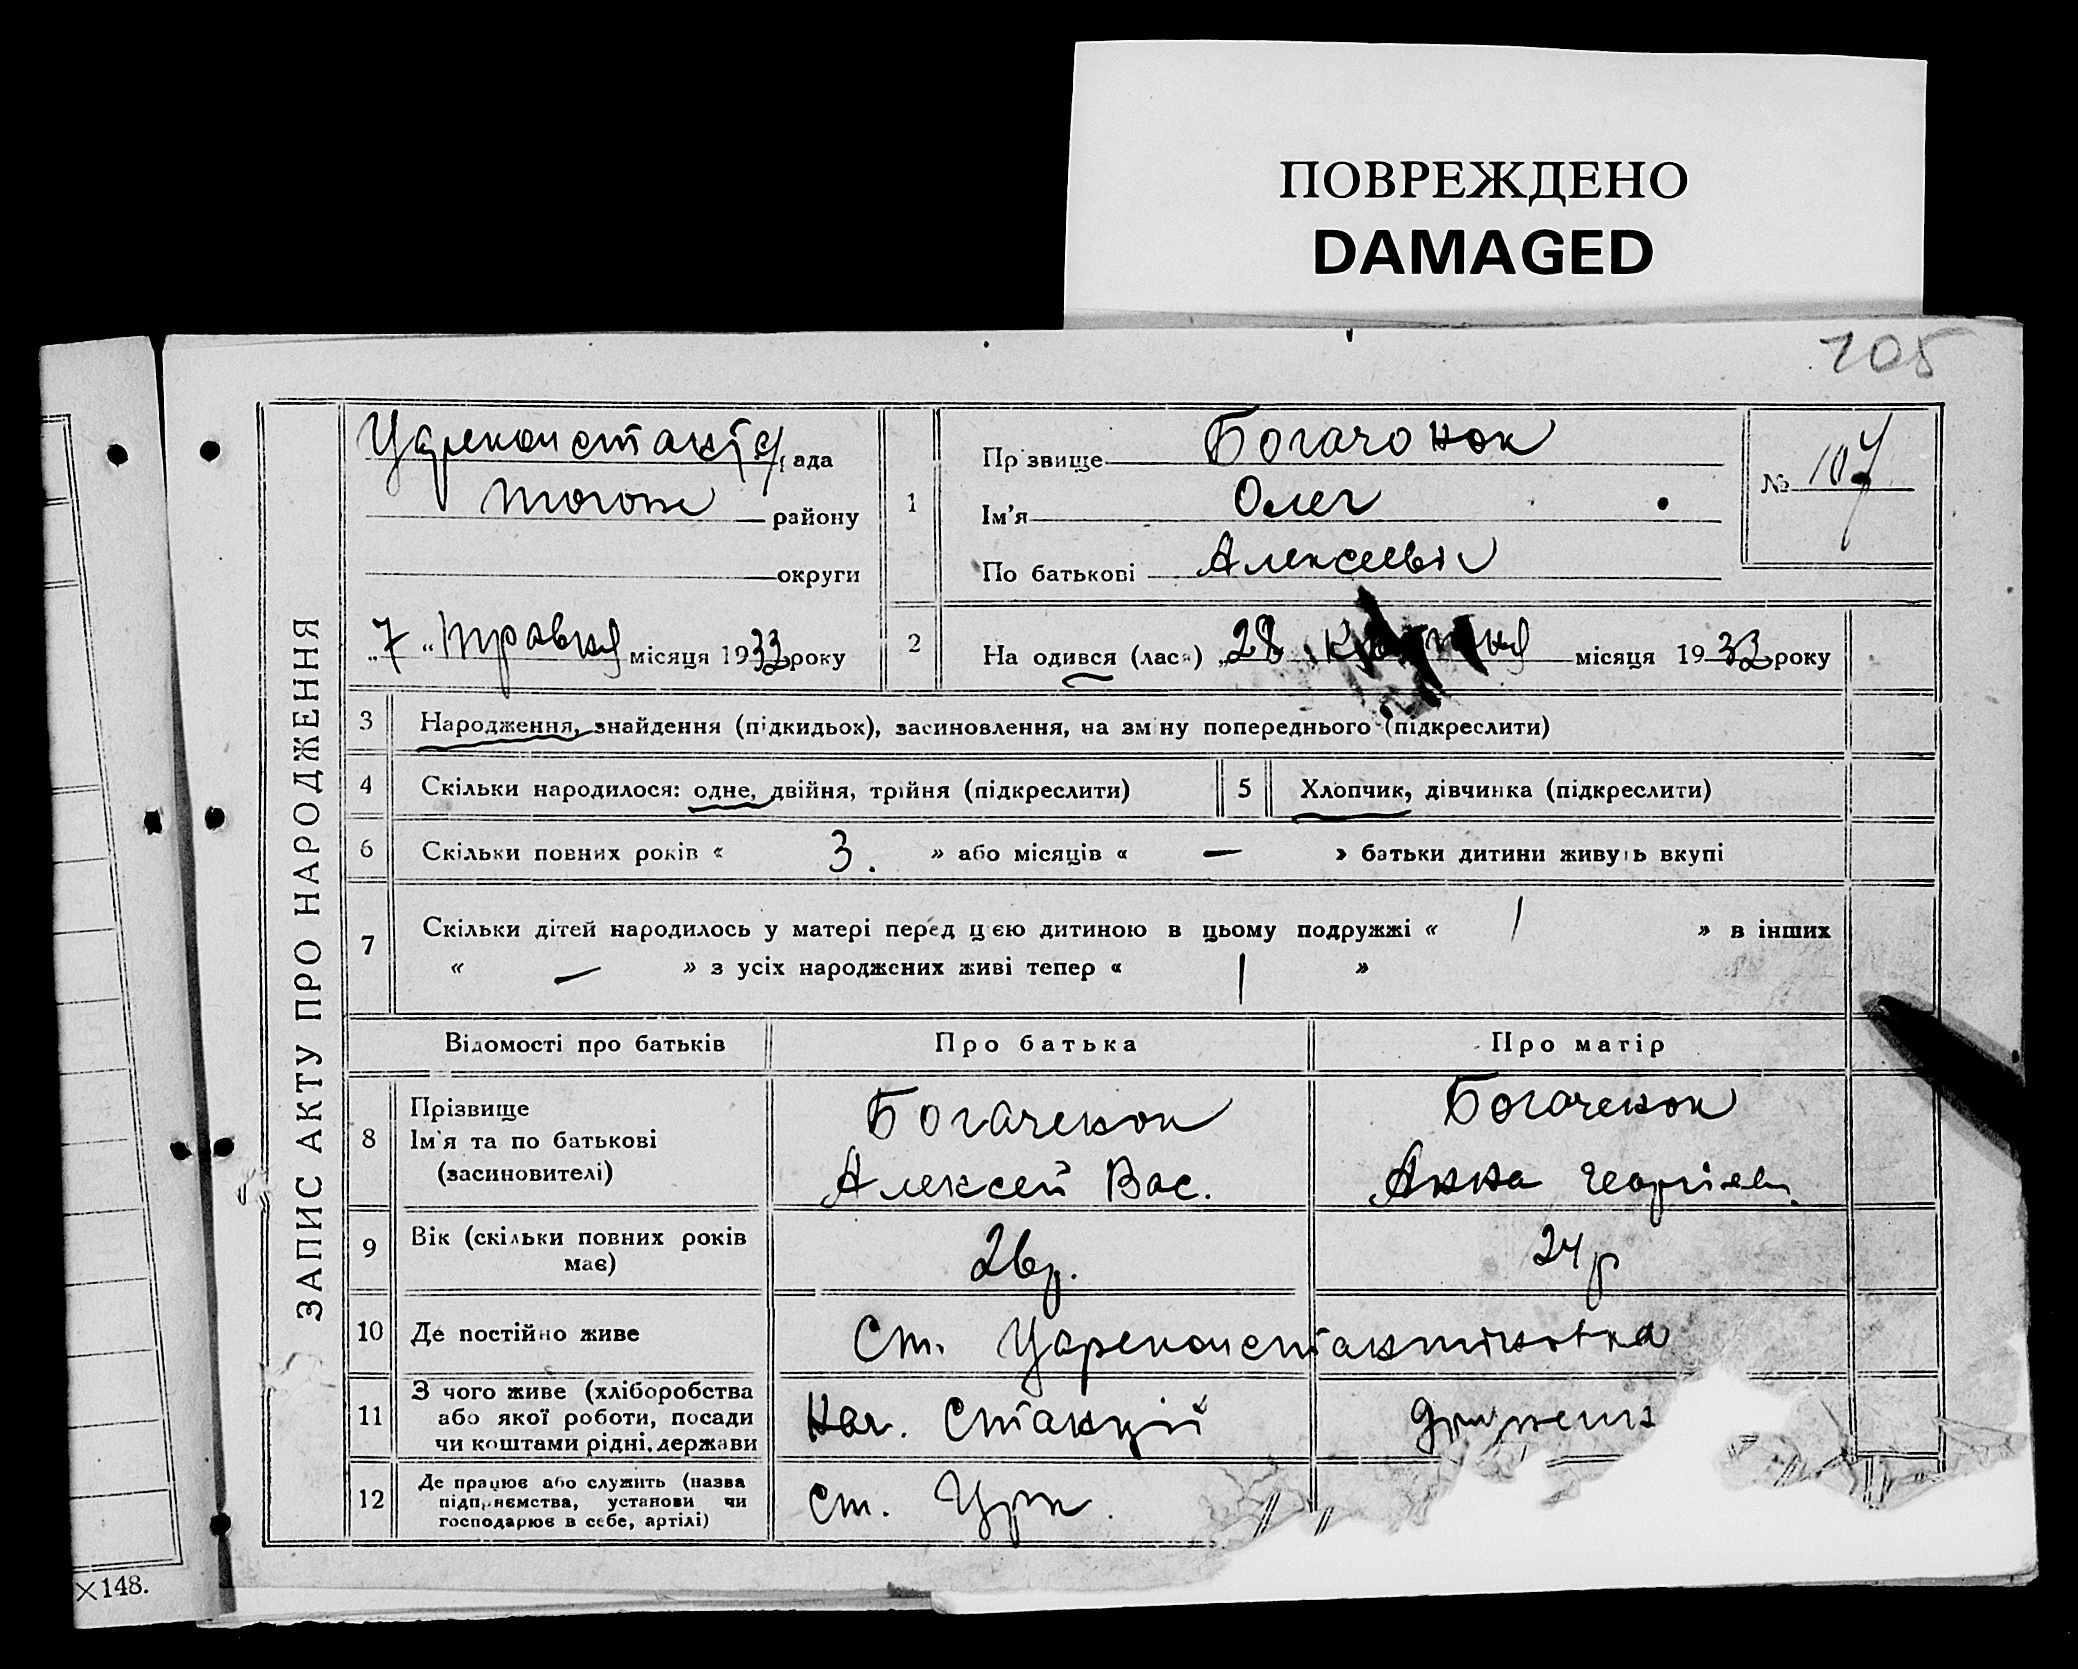 ПОВРЕЖДЕНО
DAMAGED
105
ЗАПИС АКТУ ПРО НАРОДЖЕННЯ
рада
району
округи
„7“ травня місяця 1933 року
1
Прізвище Богачонок
Ім'я Олег
По батькові Алексеевич
№ 107
2
На одився (лася) „28 квітня місяця 1933 року
3 Народження, знайдення (підкидьок), засиновлення, на зміну попереднього (підкреслити)
4 Скільки народилося: одне, двійня, трійня (підкреслити)
5 Хлопчик, дівчинка (підкреслити)
6 Скільки повних років « 3. » або місяців « — » батьки дитини живуть вкупі
7 Скільки дітей народилось у матері перед цією дитиною в цьому подружжі « 1 » в інших
« — » з усіх народжених живі тепер « 1 »
Відомості про батьків Про батька Про матір
8 Прізвище
Ім'я та по батькові
(засиновителі)
Богаченок
Алексей Вас.
Богаченок
Анна Георгіев.
9 Вік (скільки повних років
має)
26р.
24р
10 Де постійно живе
ст. Цареконстантиновка
11 З чого живе (хліборобства
або якої роботи, посади
чи коштами рідні, держави
Нач. Станції
12 Де працює або служить (назва
підприємства, установи чи
господарює в себе, артілі)
ст.
×148.